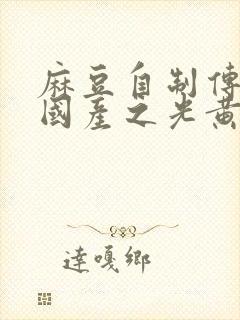 麻豆自制傳
國產之光黃
達嘎鄉